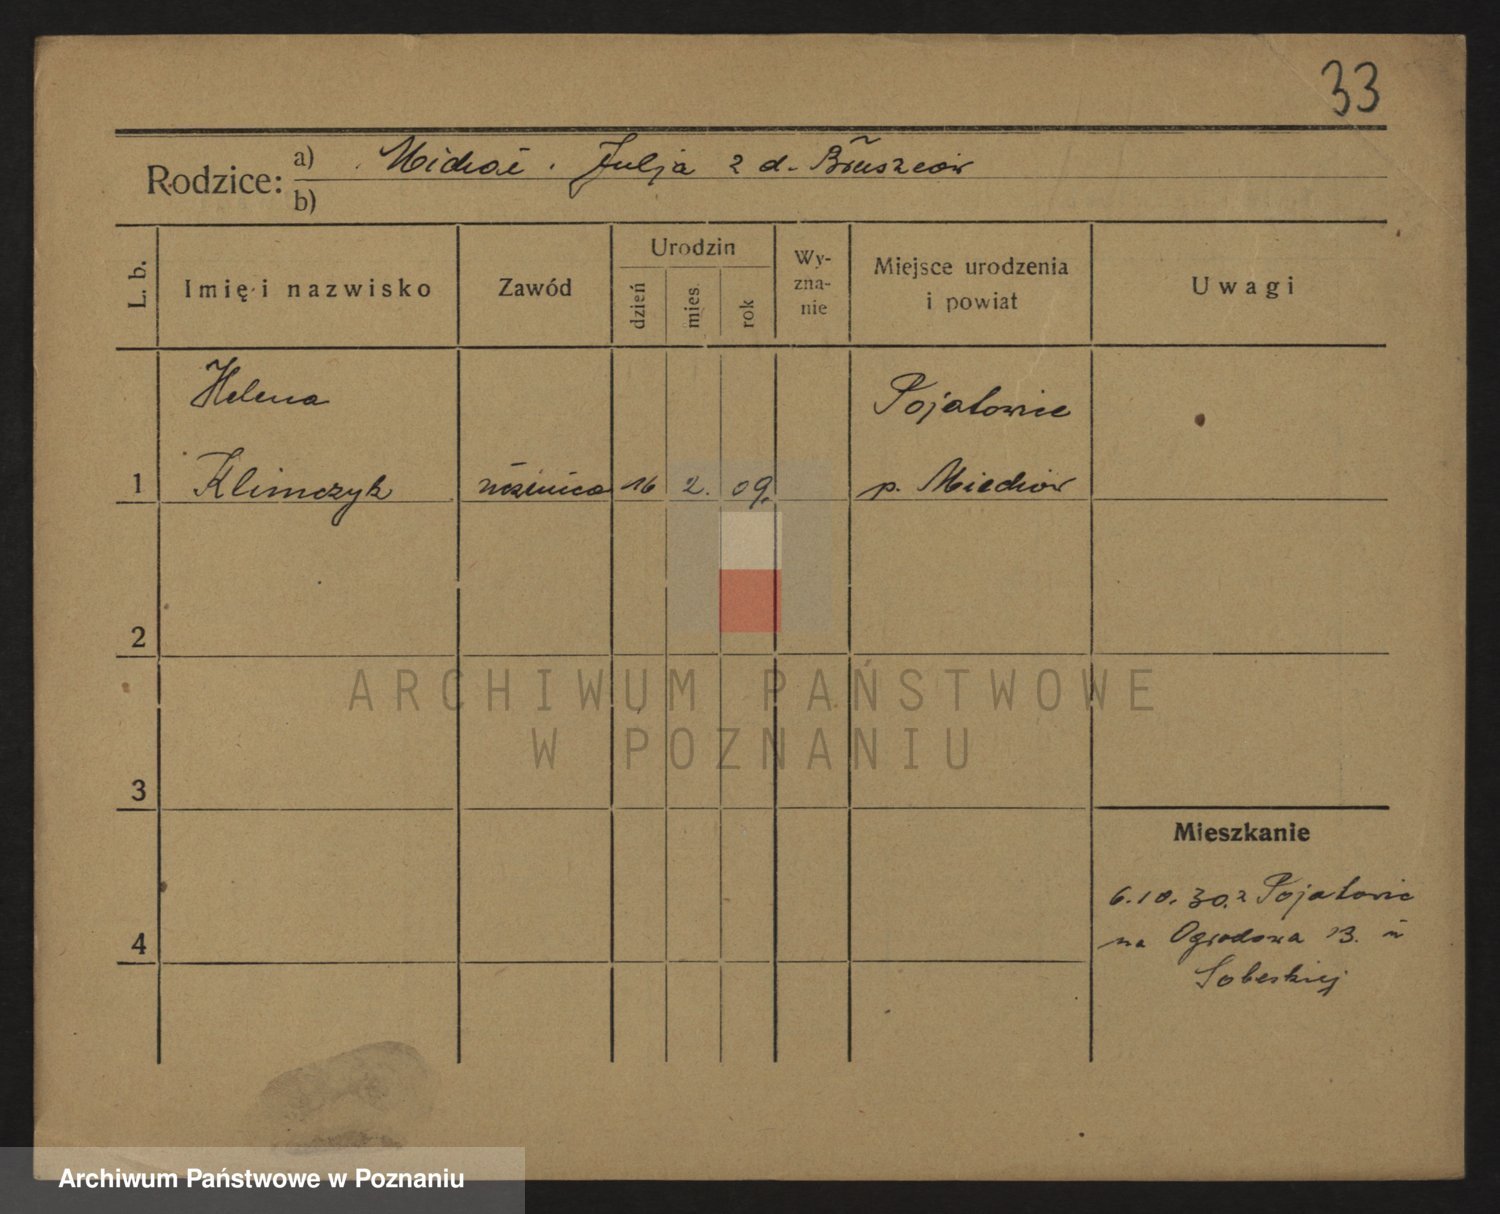 33
Rodzice: a) Michał. Julja z d.
b)
L. b.
Imię i nazwisko
Zawód
Urodzin
dzień
mies.
rok
Wy-
zna-
nie
Miejsce urodzenia
i powiat
Uwagi
Helena
Pojałowice
1 Klimczyk uczenica 16 2. 09. p. Miechów
2
ARCHIWUM PAŃSTWOWE
W POZNANIU
3
Mieszkanie
6.10.30. z Pojałowic
4
na Ogrodowa 13. u
Sobeskiej
Archiwum Państwowe w Poznaniu